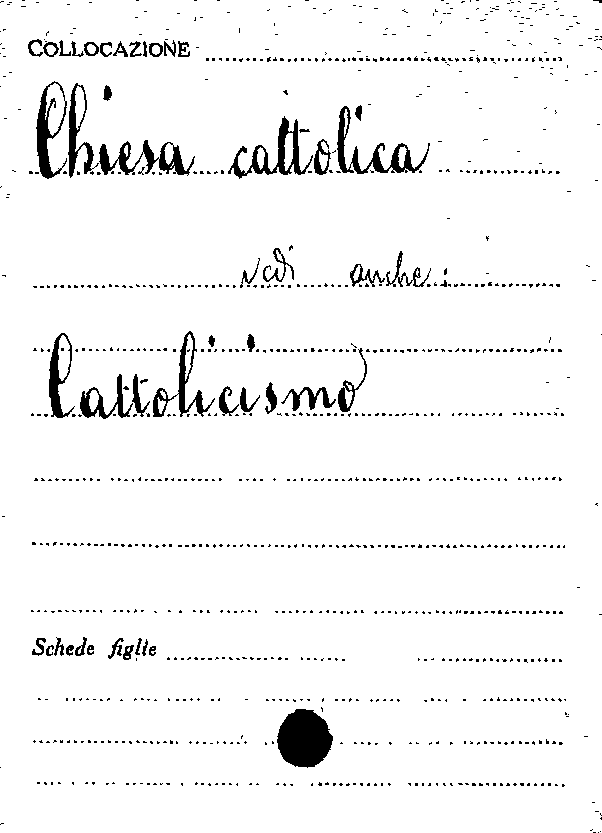 COLLOCAZIONE
Chiesa cattolica
vedi anche:
Cattolicismo
Schede figlie